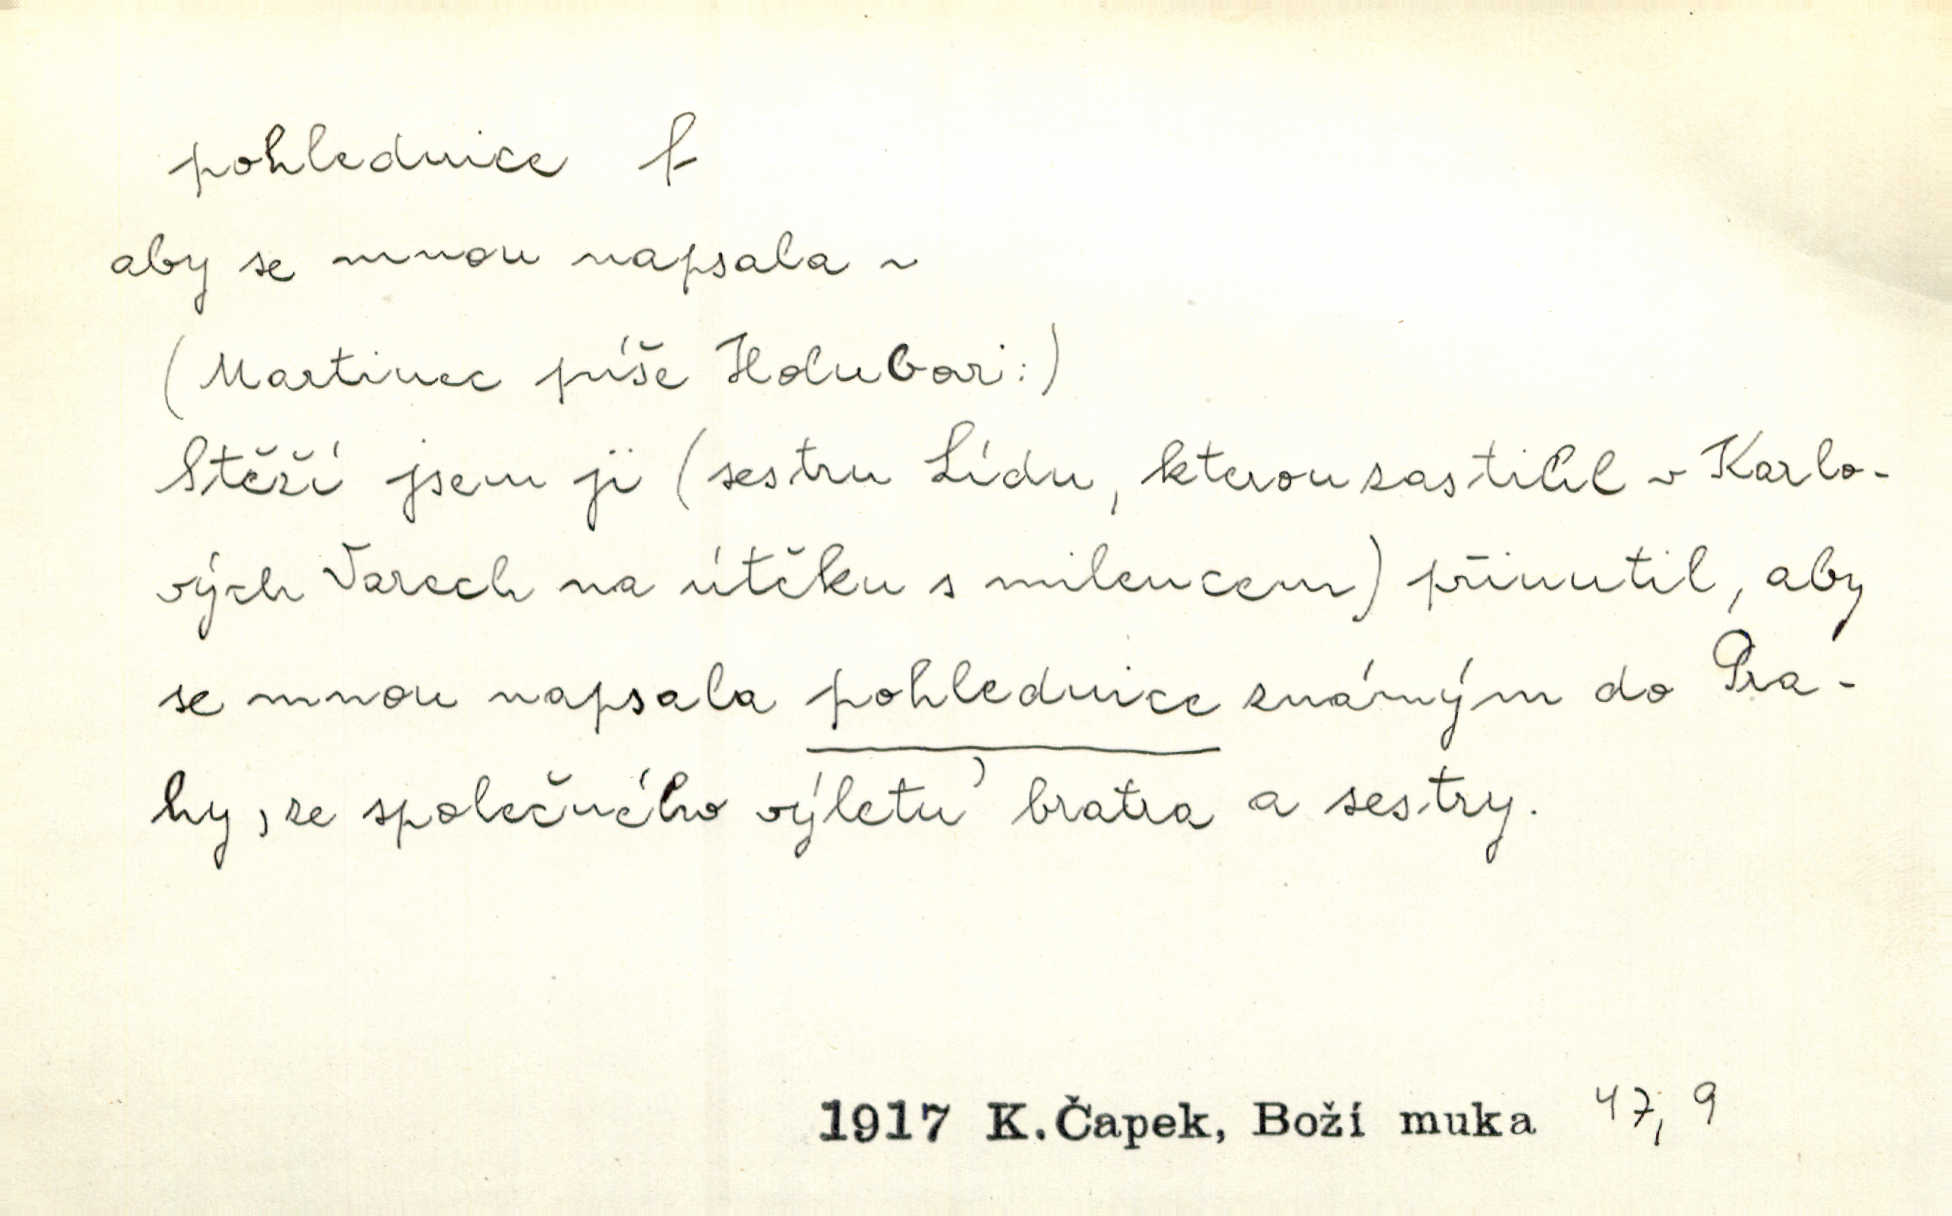 pohlednice f
aby se mnou napsala ~
(Martinec píše Holubovi:)
Stěží jsem ji (sestru Lídu, kterou zastihl v Karlo-
vých Varech na útěku s milencem) přinutil, aby
se mnou napsala pohlednice známým do Pra-
hy, ze společného výletu' bratra a sestry.
1917 K.Čapek, Boží muka 47, 9